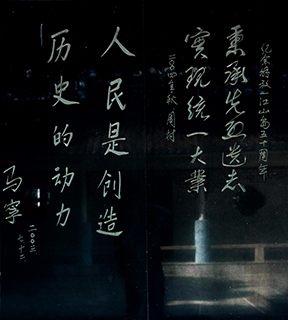 纪念解放一江山岛五十周年
秉承先烈遗志
實现统一大業
二〇〇四年秋
人民是创造
历史的动力
马寧
二〇〇三
七十二